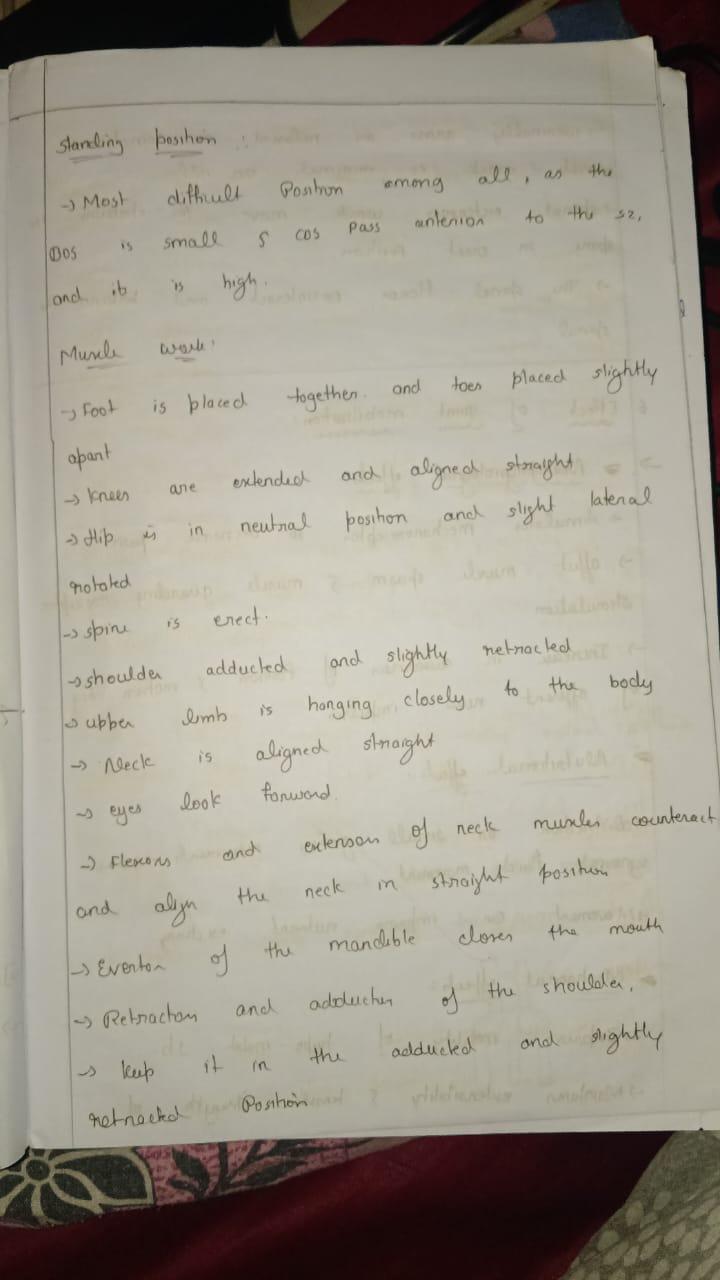 Standing position :
→ Most difficult Position among all, as the
BOS is small & COS pass anterior to the S2,
and it is high.
Muscle work:
→ Foot is placed together and toes placed slightly
apart
→ Knees are extended and aligned straight
→ Hip is in neutral position and slight lateral
rotated
→ spine is erect.
→ shoulder adducted and slightly retracted
→ upper limb is hanging closely to the body
→ Neck is aligned straight
→ eyes look forward.
→ Flexors and extensors of neck muscles counteract
and align the neck in straight position
→ Evertor of the mandible closes the mouth
→ Retractors and adductors of the shoulder,
→ keep it in the adducted and slightly
retracted Position